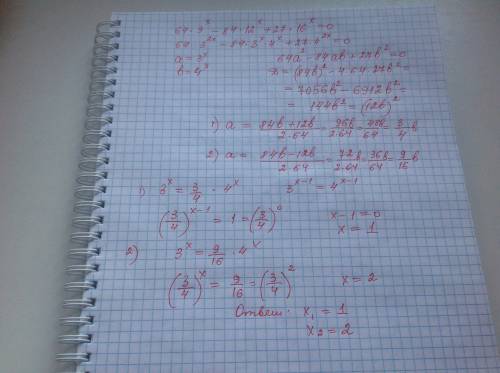 64·9ˣ − 84·12ˣ + 27·16ˣ = 0
64·3²ˣ − 84·3ˣ·4ˣ + 27·4²ˣ = 0
a = 3ˣ    64a² − 84ab + 27b² = 0
b = 4ˣ    D = (84b)² − 4·64·27b² =
= 7056b² − 6912b² =
= 144b² = (12b)²
1) a = (84b+12b)/(2·64) = 96b/(2·64) = 48b/64 = 3/4 b
2) a = (84b−12b)/(2·64) = 72b/(2·64) = 36b/64 = 9/16 b
1) 3ˣ = 3/4 · 4ˣ    3ˣ⁻¹ = 4ˣ⁻¹
(3/4)ˣ⁻¹ = 1 = (3/4)⁰    x−1 = 0
x = 1
2) 3ˣ = 9/16 · 4ˣ
(3/4)ˣ = 9/16 = (3/4)²    x = 2
Ответ: x₁ = 1
x₂ = 2